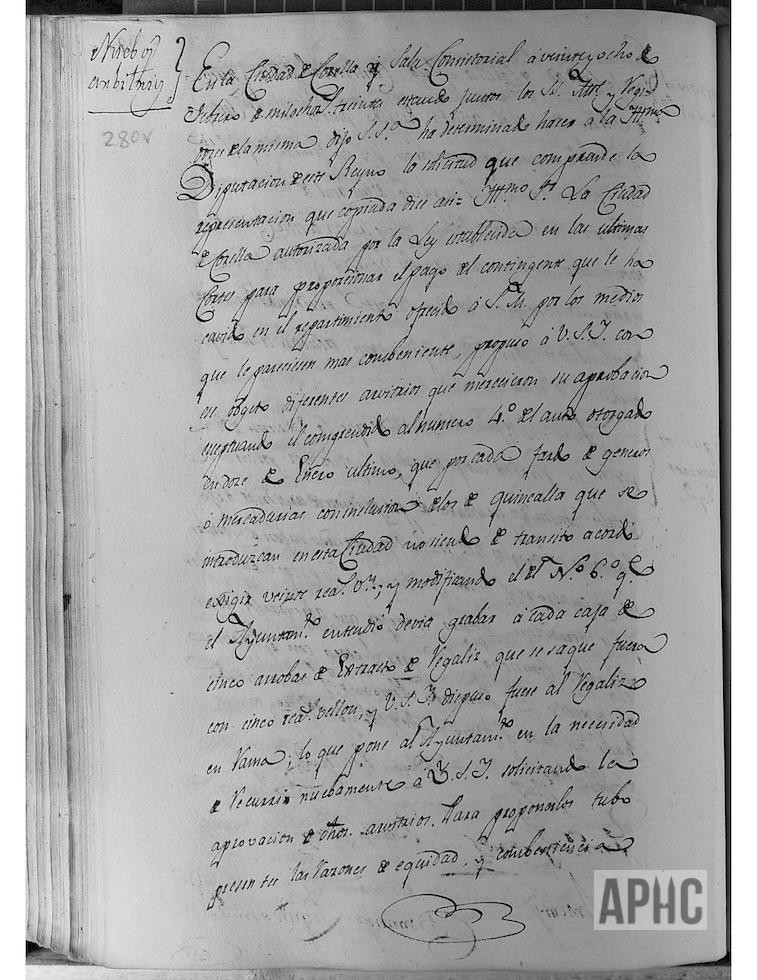 Nueb os
arbitrios
280v
En la Ciudad de Corella y Sala Consistorial á veinte y ocho de
Febrero de mil ochos. treinta estando juntos los SS. Alc. y Regi-
dores de la misma dijo S.Sa. ha determinado hacer á la Illma.
Diputacion de este Reyno la solicitud que comprende la
representacion que copiada dice asi = Illmo. Sr. La Ciudad
de Corella autorizada por la Ley establecida en las ultimas
Cortes para proporcionar el pago del contingente que le ha
cavido en el repartimiento ofrecido á S.M. por los medios
que le pareciesen mas combeniente, propuso á V.S.I. con
ese objeto diferentes arvitrios que merecieron su aprobacion
exceptuando el comprendido al numero 4.º del auto otorgado
en doce de Enero ultimo, que por cada fardo de generos
ó mercadurias con inclusion de los de quincalla que se
introduzcan en esta Ciudad no siendo de transito acordó
exigir veinte reas. vn.; y modificando el del N.º 6.º qe.
el Ayuntamto. entendió devia grabar á cada caja de
cinco arrobas de Extracto de Regaliz que se saque fuera
con cinco reas. vellon, y V.S.I. dispuso fuese al Regaliz
en Rama; lo que pone al Ayuntamto. en la necesidad
de Recurrir nuebamente á V.S.I. solicitando la
aprovacion de otros arvitrios. Para proponerlos tubo
presentes las Razones de equidad, y combeniencia
APHC